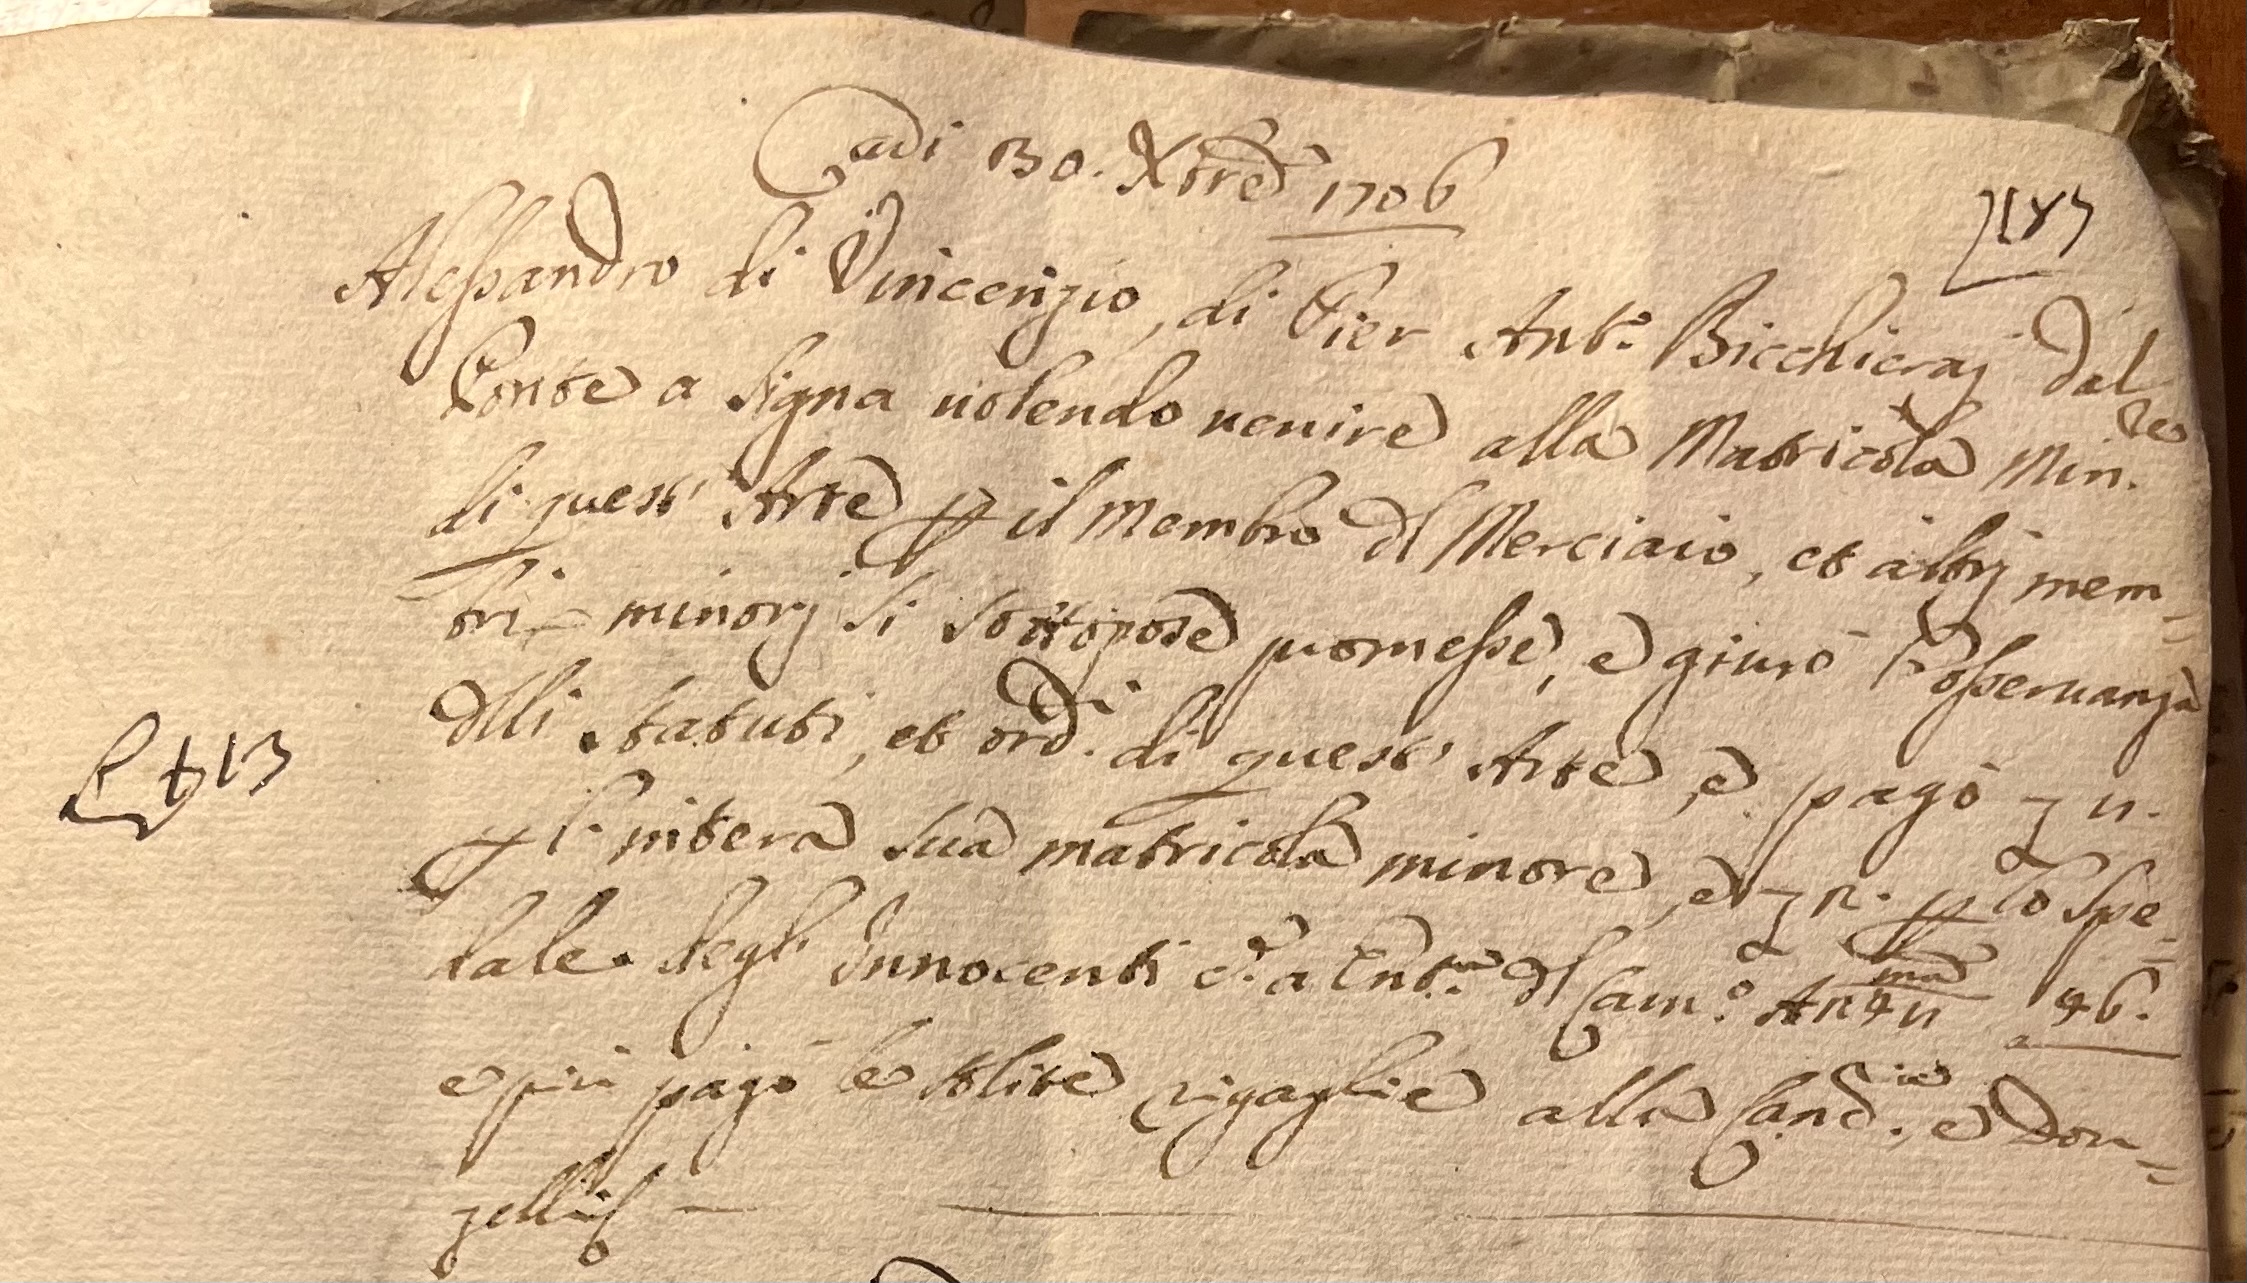 Adi 30. Xbre 1706
Alessandro di Vincenzio, di Pier Ant.o Bicchieraj dal
Ponte a Signa volendo venire alla Matricola Min.re
di quest' Arte p il Membro dl Merciaio, et altrj mem=
bri minorj si sottopose promesse, e giurò l'osservanza
dlli statuti, et ord.i di quest' Arte, e pagò
p l'intera sua matricola minore, e p lo Spe=
dale degl' Innocenti c.e a Ent.a dl Cam.o 46.
e più pagò le solite rigaglie alla Canc.ia, e Don=
zellj